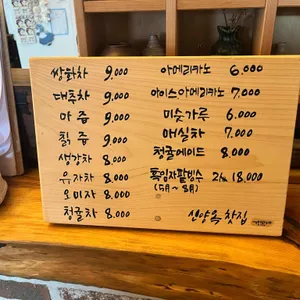 쌍화차 9,000
대추차 9,000
마즙 9,000
칡즙 9,000
생강차 8,000
유자차 8,000
오미자 8,000
청귤차 8,000
아메리카노 6,000
아이스아메리카노 7,000
미숫가루 6,000
매실차 7,000
청귤에이드 8,000
흑임자팥빙수 2인 18,000
(5月~8月)
선양옥찻집